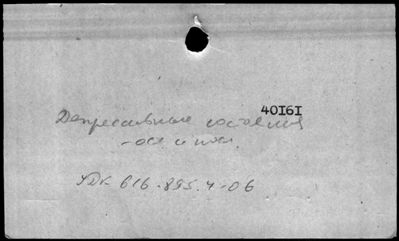 40161
Депрессивные состояния
УДК 616.895.4-06